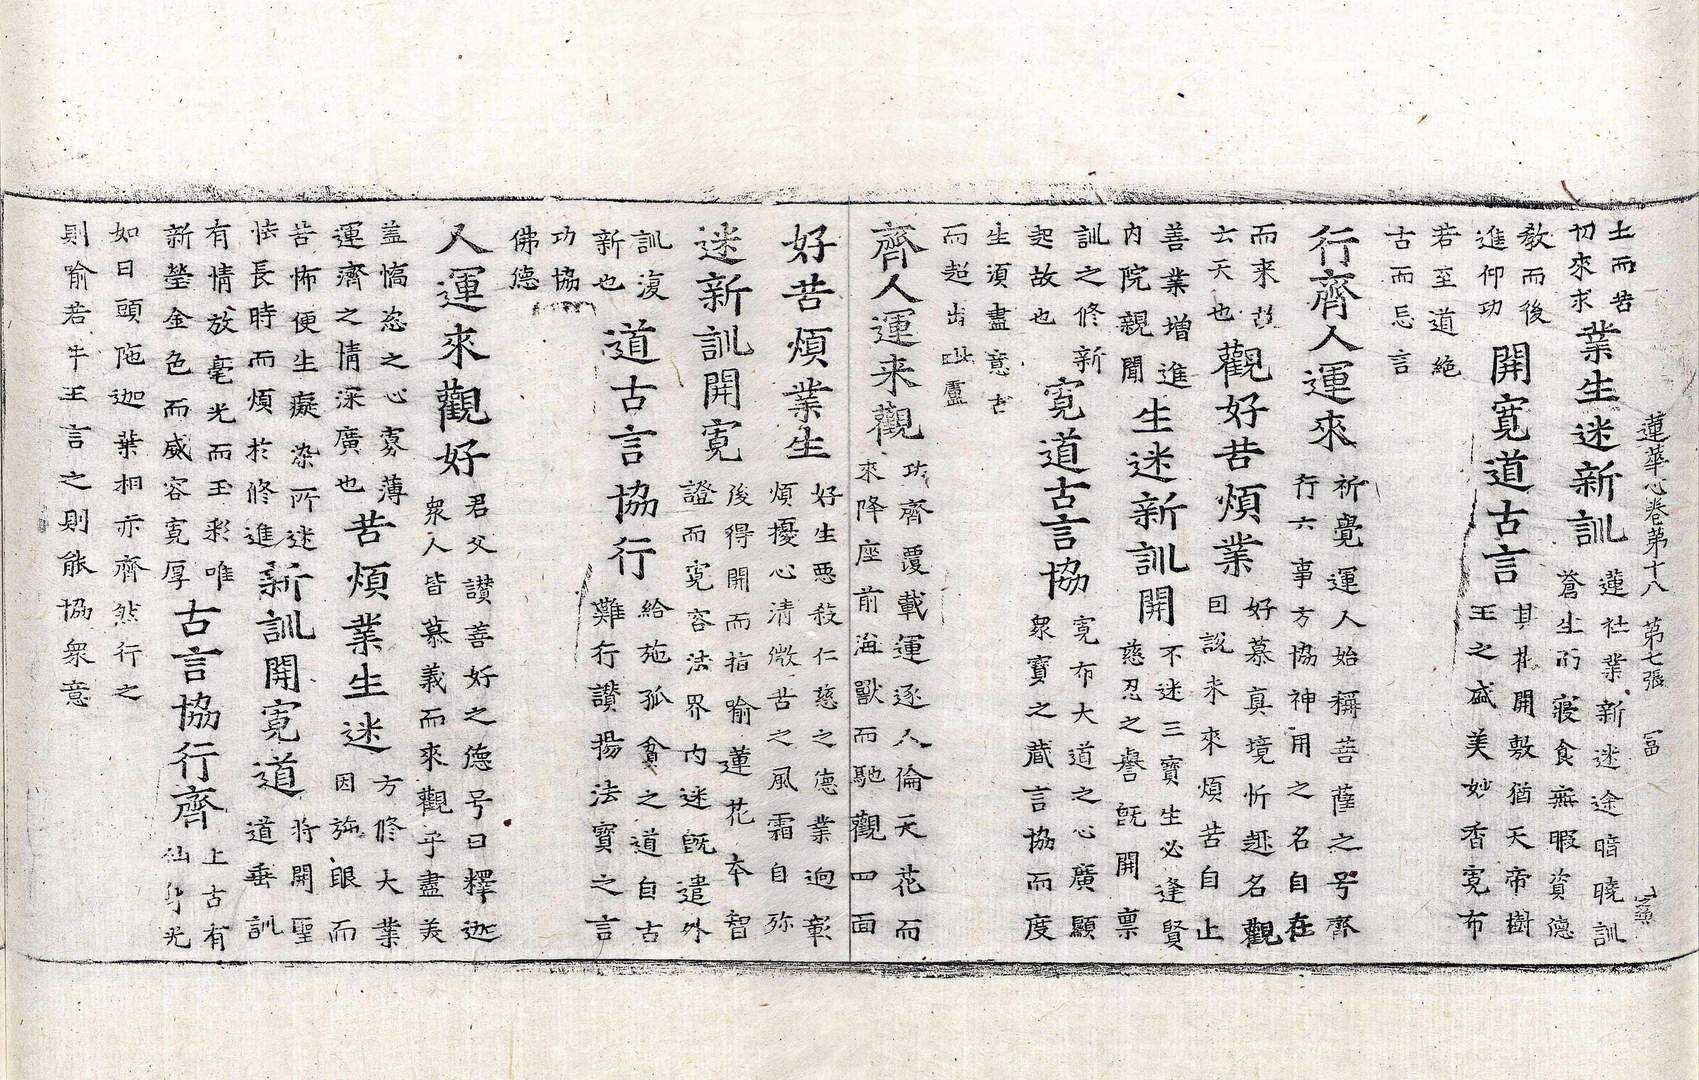 蓮華心卷第十八 第七張 富
土而苦
切來求
業生迷新訓
蓮社業新迷途暗曉訓
蒼生而寢食無暇資德
教而後
進仰功
開寬道古言
其開敷猶天帝樹
王之盛美妙香寬布
若至道絕
古而忘言
行齊人運來
祈覺運人始稱菩薩之号齊
行六事方協神用之名自在
而来故
云天也
觀好苦煩業
好慕真境忻趣名觀
曰說未來煩苦自止
善業増進
内院親聞
生迷新訓開
不迷三寶生必逢賢
慈忍之譽既開稟
訓之修新
起故也
寬道古言協
寬布大道之心廣顯
衆寶之藏言協而度
生須盡意古
而超出毗盧
齊人運来觀
功齊覆載運逐人倫天花而
來降座前海獸而馳觀四面
好苦煩業生
好生惡殺仁慈之德業逈彰
煩擾心清微苦之風霜自弥
迷新訓開寬
後得開而指喻蓮花本智
證而寬容法界内迷既遣外
訓復
新也
道古言協行
給施孤貧之道自古
難行讃揚法寶之言
功協
佛德
人運來觀好
君父讃善好之德号曰釋迦
衆人皆慕義而來觀乎盡美
盖恣之心寡薄
運齊之情深廣也
苦煩業生迷
方修大業
因眼而
苦怖便生癡染所迷
怯長時而煩於修進
新訓開寬道
将開聖
道垂訓
有情放毫光而玉彩唯
新瑩金色而威容寬厚
古言協行齊
上古有
仙身光
如日頭陁迦葉相亦齊然行之
則喻若牛王言之則能協衆意